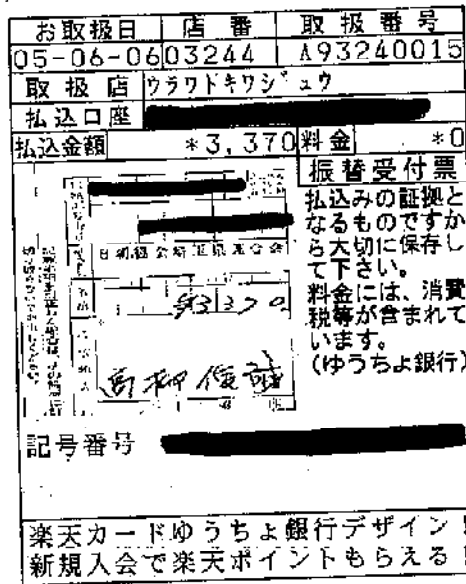 お取扱日 店番 取扱番号
05-06-06 03244 A93240015
取扱店 ウラワトキワジュウ
払込口座
払込金額 *3,370 料金 *0
振替受付票
払込みの証拠と
なるものですか
ら大切に保存し
て下さい。
料金には、消費
税等が含まれて
います。
(ゆうちょ銀行)
¥3370
高柳俊誠
記号番号
楽天カードゆうちょ銀行デザイン!
新規入会で楽天ポイントもらえる!